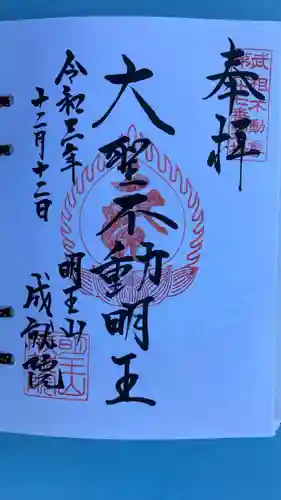 奉拝
武相不動尊
大聖不動明王
令和三年
十二月十二日
明王山
成就院